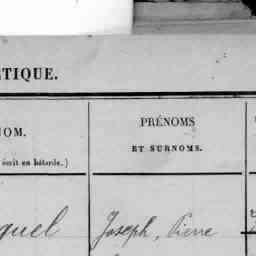 TIQUE.
NOM.
écrit en bâtarde.)
PRÉNOMS
ET SURNOMS.
quel
Joseph, Pierre